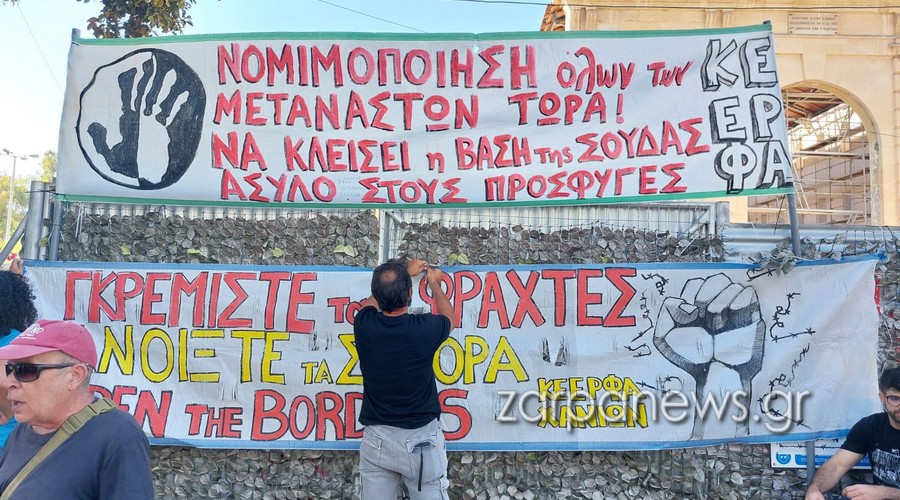 ΝΟΜΙΜΟΠΟΙΗΣΗ όλων των
ΜΕΤΑΝΑΣΤΩΝ ΤΩΡΑ!
ΝΑ ΚΛΕΙΣΕΙ η ΒΑΣΗ της ΣΟΥΔΑΣ
ΑΣΥΛΟ ΣΤΟΥΣ ΠΡΟΣΦΥΓΕΣ
ΚΕ
ΕΡ
ΦΑ
ΓΚΡΕΜΙΣΤΕ ΦΡΑΧΤΕΣ
ΝΟΙΞΤΕ ΤΑ
THE BORD
ΚΕΕΡΦΑ
ΧΑΝΙΩΝ
zarpanews.gr